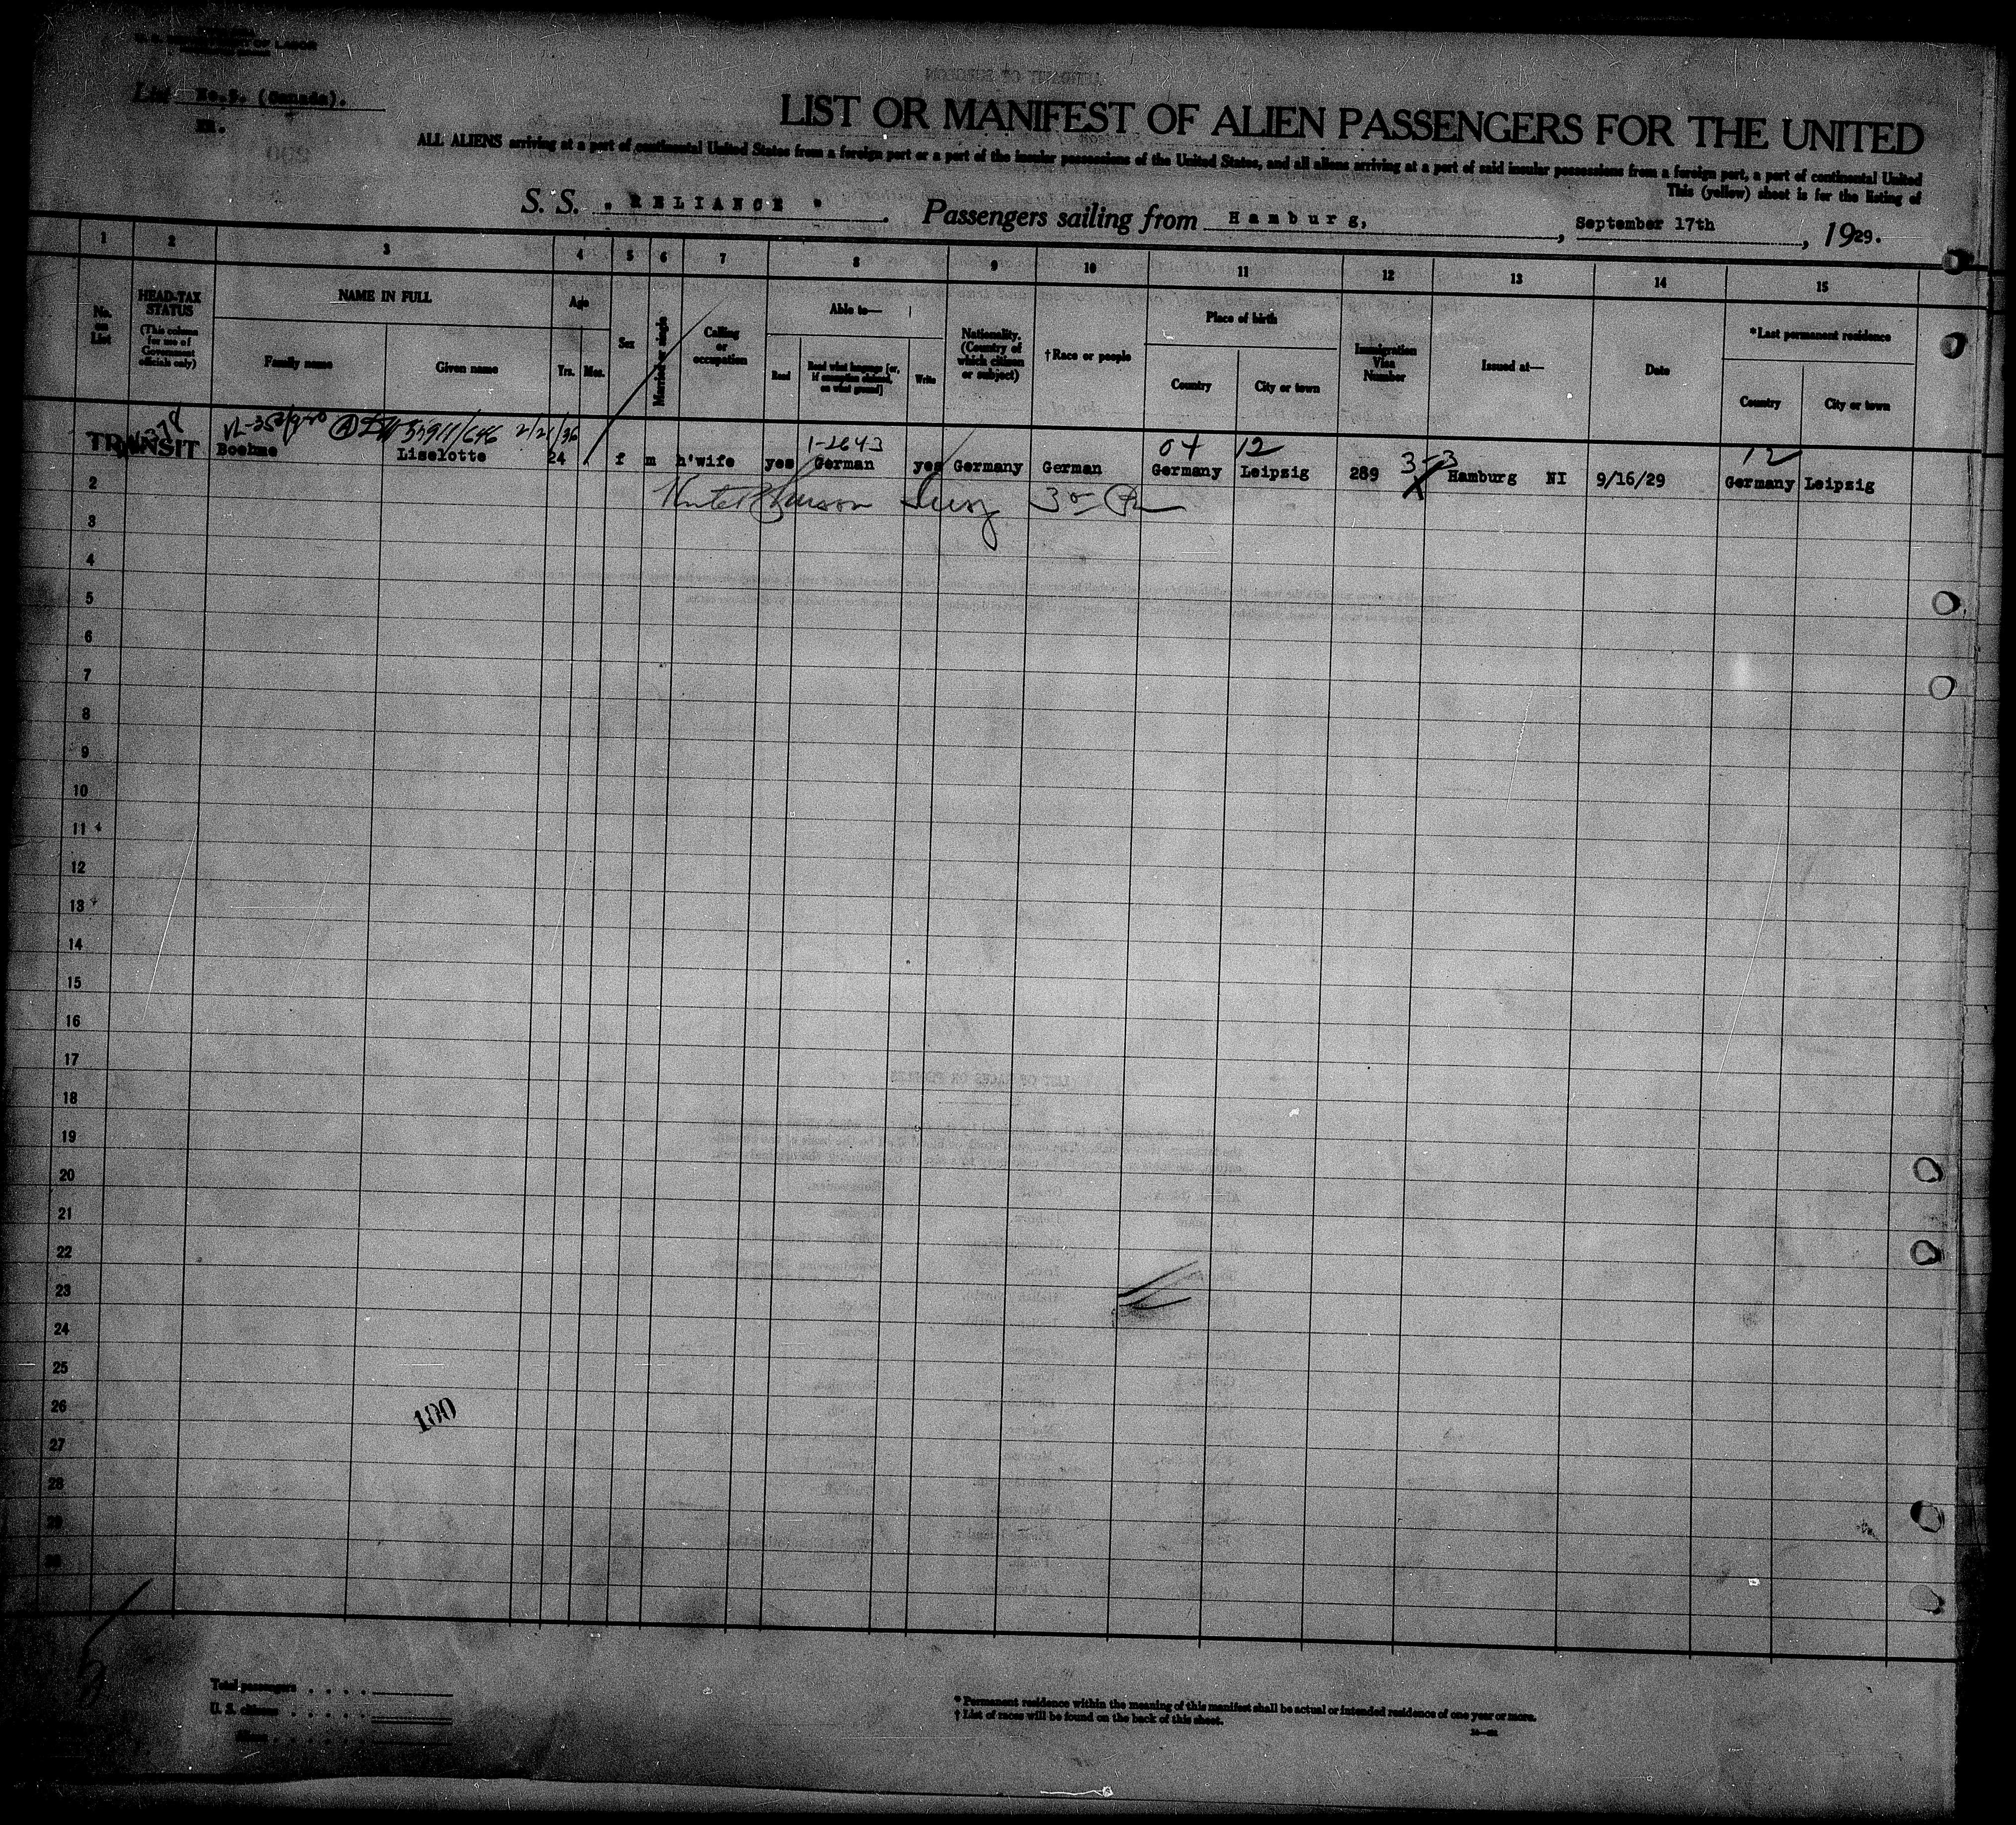 OF LABOR
List No.5. (Canada).
LIST OR MANIFEST OF ALIEN PASSENGERS FOR THE UNITED
ALL ALIENS arriving at a port of continental United States from a foreign port or a port of the insular possessions of the United States, and all aliens arriving at a port of said insular possessions from a foreign port, a port of continental United
This (yellow) sheet is for the listing of
S. S. " RELIANCE ". Passengers sailing from Hamburg, , September 17th , 1929.
1 2 3 4 5 6 7 8 9 10 11 12 13 14 15
No. on List
HEAD-TAX STATUS
(This column for use of Government officials only)
NAME IN FULL
Family name
Given name
Age
Yrs. Mos.
Sex
Married or single
Calling or occupation
Able to—
Read
Read what language [or, if exemption claimed, on what ground]
Write
Nationality. (Country of which citizen or subject)
†Race or people
Place of birth
Country
City or town
Immigration Visa Number
Issued at—
Date
*Last permanent residence
Country
City or town
37911/646 2/21/36 1-2643 04 12 3-3 12
TRANSIT Boehme Liselotte 24 f m h'wife yes German yes Germany German Germany Leipzig 289 Hamburg NI 9/16/29 Germany Leipzig
2
3
4
5
6
7
8
9
10
11
12
13
14
15
16
17
18
19
20
21
22
23
24
25
26
100
27
28
29
30
Total passengers . . . .
U. S. citizens . . . . .
Aliens . . . . . .
* Permanent residence within the meaning of this manifest shall be actual or intended residence of one year or more.
† List of races will be found on the back of this sheet.